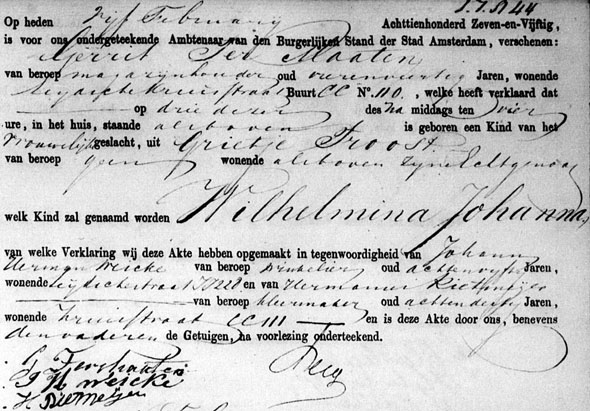 S.7.N 44
Op heden vijf February Achttienhonderd Zeven-en-Vijftig,
is voor ons ondergeteekende Ambtenaar van den Burgerlijken Stand der Stad Amsterdam, verschenen:
Gerrit Ter Maaten
van beroep magazijnhouder oud vierenveertig Jaren, wonende
Leydschekruisstraat Buurt CC N°. 110, welke heeft verklaard dat
op drie dezer des na middags ten vier
ure, in het huis, staande alsboven is geboren een Kind van het
Vrouwelijk geslacht, uit Grietje Troost
van beroep geen wonende alsboven zyne Echtgenoot
welk Kind zal genaamd worden Wilhelmina Johanna,
van welke Verklaring wij deze Akte hebben opgemaakt in tegenwoordigheid van Johann
Herman Weicke van beroep winkelier oud Jaren,
wonende en van Hermanus
van beroep kleermaker oud achtendertig Jaren,
wonende Kruisstraat CC 111 en is deze Akte door ons, benevens
den vader en de Getuigen, na voorlezing onderteekend.
J H Weicke